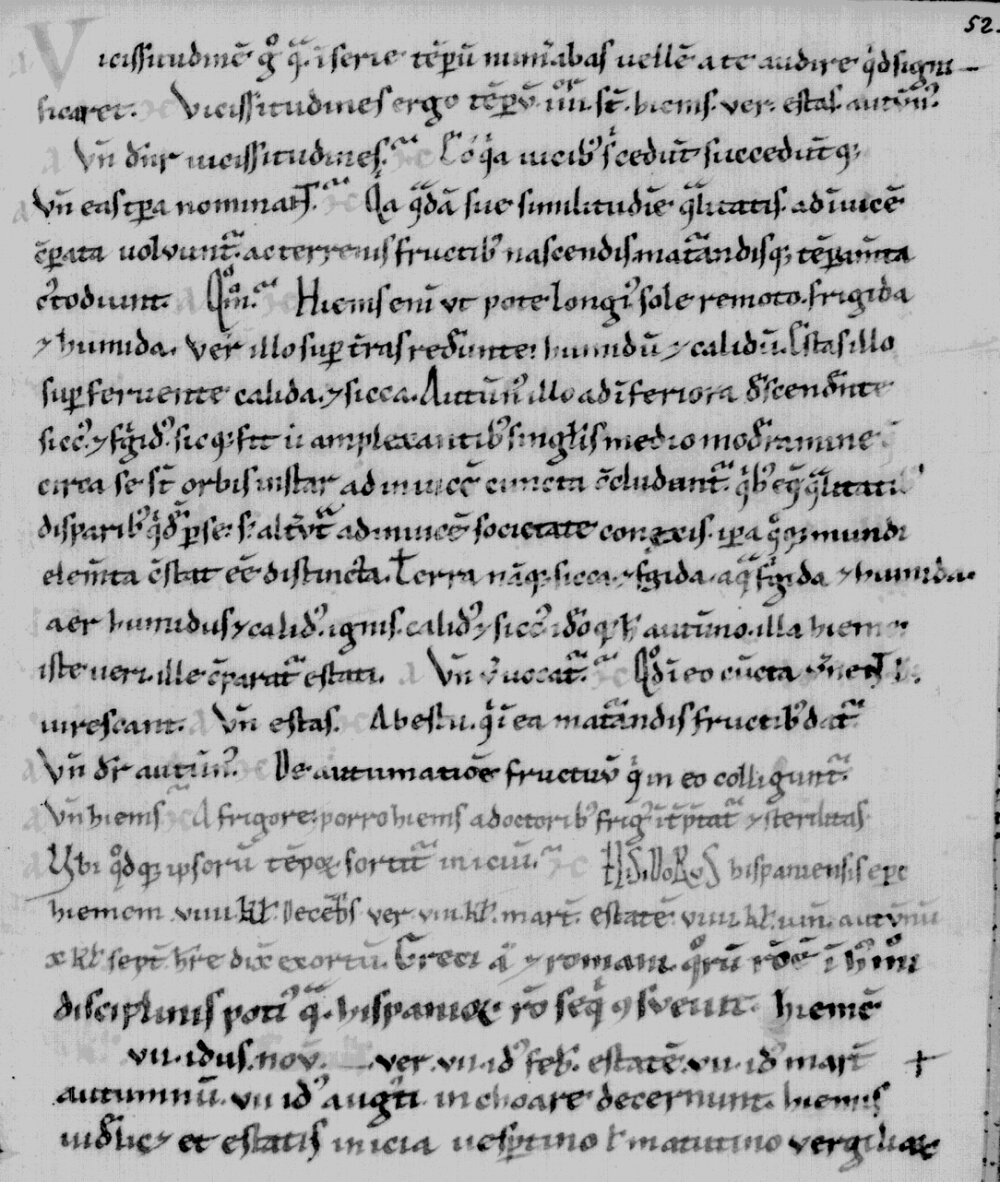 52.
Vicissitudinē g̊ q̄ ī serie tēpū num̄abas uellē a te audire q̇d signi
ficaret. Vicissitudines ergo tēpū iiii. st̄. hiems. ver. estas. autūn᷒.
Vn̄ dn̄r uicissitudines. Eo q̇a uicib᷒ s̄cedunt succeduntq;
Vn̄ eas tp̄a nominat̄. Qa q̄dā sue similitudiē q̄litatis. ad īuicē
cp̄ata uolvunt᷑. ac terrenis fructib᷒ nascendis mat᷑andisq; tēpam̄ta
c᷒todiunt. Qm̊. Hiems enī ut pote long᷒ sole remoto. frigida
⁊ humida. ver illo sup̄ t̄ras redeunte: humidū ⁊ calidū. Estas illo
sup̄feruente calida. ⁊ sicca. Autūn᷒ illo ad īferiora d̄scendente
sicc᷒. ⁊ fg̍id᷒. sicq; fit ū amplexantib᷒ singl̄is medio mod̄ramine
circa se st̄ orbis instar ad inuicē cuncta c̄cludunt᷑. q̇b᷒ eq̄ q̄litatib᷒
disparib᷒ q̇d̄ per se: s; alt̄ut᷑ ad inuicē societate conexis. ip̄a q̊q; mundi
elem̄ta c̄stat eē distincta. Terra nāq; sicca ⁊ fg̍ida. aq̄ fg̍ida ⁊ humida.
aer humidus ⁊ calid᷒. ignis. calid᷒ ⁊ sicc᷒. id̊oq; h̄ autūno. illa hieme:
iste ueri. ille cp̄arat᷑ estati. Vn̄ ū uocat᷑. Qd̊ ī eo cūcta
uirescant. Vn̄ estas. Ab estu. q̇ ī ea mat᷑andis fructib᷒ dat᷑
Vn̄ dr̄ autūn᷒. De autumatiōe fructuū q̇ in eo colligunt᷑.
Vn̄ hiems A frigore. porro hiems a doctorib᷒ frig᷒ īt̄ptat᷑ ⁊ sterilitas
Ybi q̊dq; ipsorū tēpoꝝ sortit᷑ iniciū. HISIDORVS hispaniensis ep̄c
hiemem viiii kl̄. Decēb̄s ver. viii. kl̄. mart̄. estatē. viiii kl̄ iun̄. autūnū
x kl̄ sept̄ h̄re dix̄ exortū. Greci aū ⁊ romani. q̊rū
disciplinis poti᷒ q̄. hispanioꝝ seq̄ ꝯsveuit. hiemē
vii. idus. nov̄. ver. vii. id᷒ feb̄. estatē. vii. id᷒ mart̄ +
autumnū. vii id᷒ aug᷒ti inchoare decernunt. hiemis
uid̄lic⁊ et estatis inicia uesp̄tino t̄ matutino vergiliaꝝ